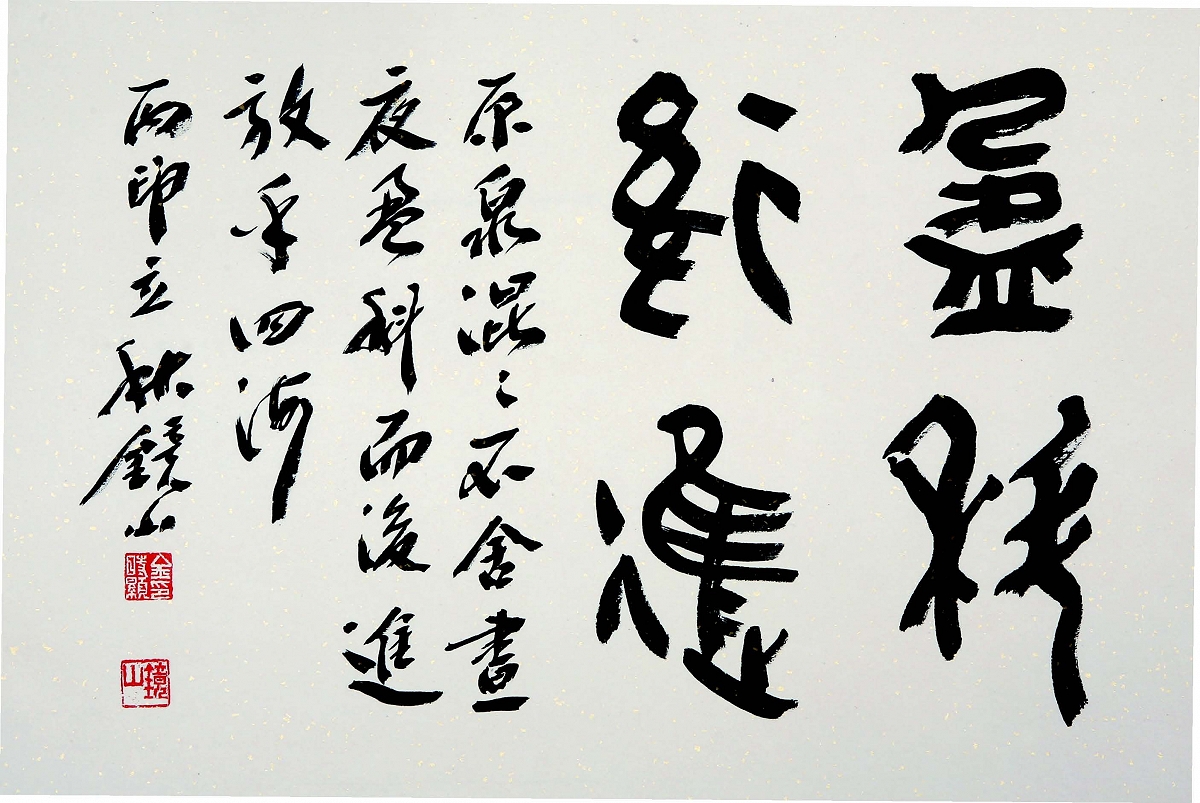 盈科
後進
原泉混〻不舍晝
夜盈科而後進
放乎四海
丙申立秋鏡山
金印
時顯
鏡山